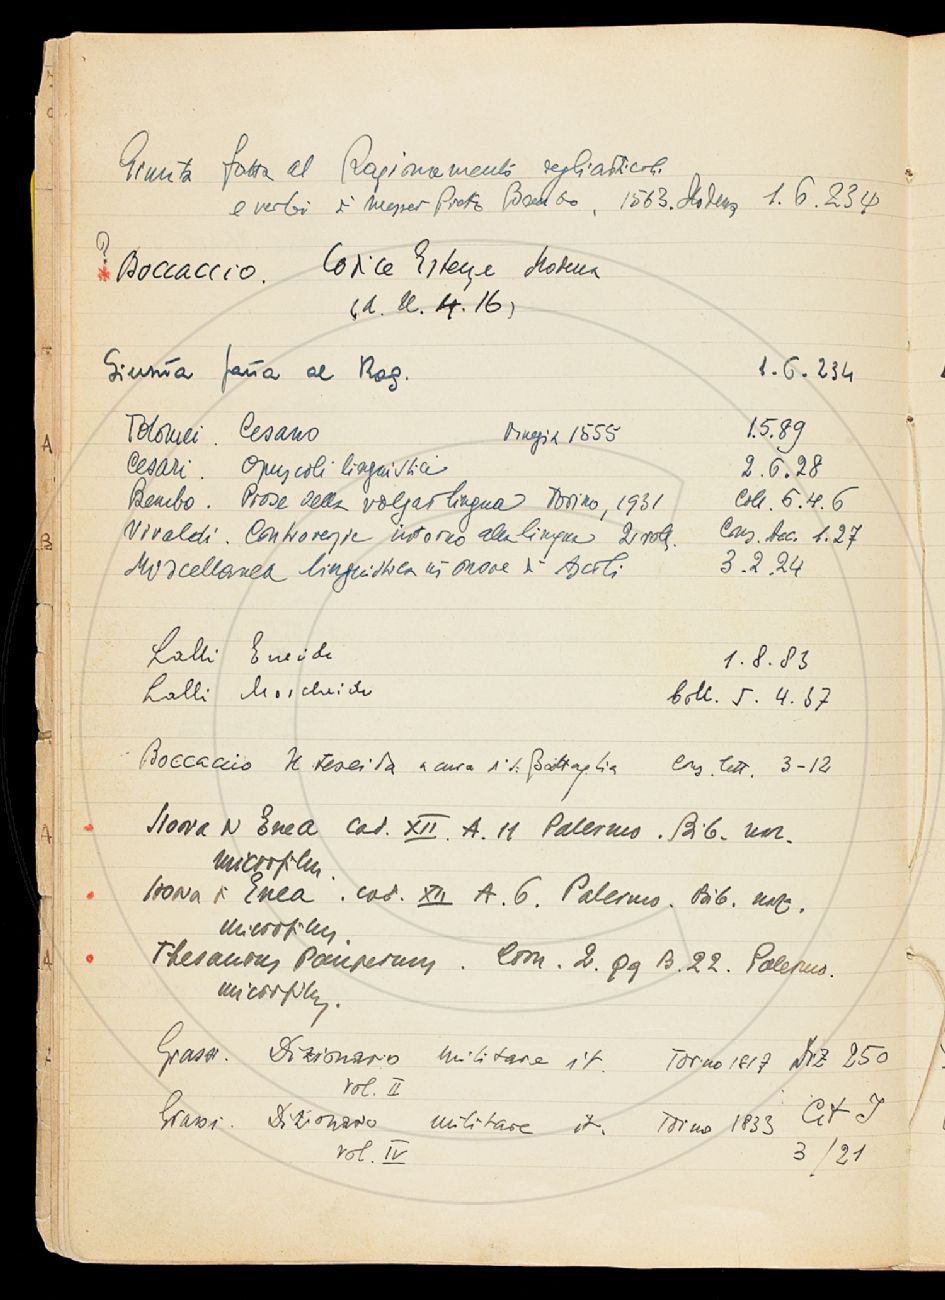 Giunta fatta al Ragionamento degli articoli
e verbi di messer Pietro Bembo, 1563. Modena 1.6.234
? Boccaccio. Codice Estense Modena
4. 16)
Giunta fatta al Rag. 1.6.234
Tolomei. Cesano 1555 1.5.89
Cesari. Opuscoli linguistici 2.6.28
Bembo. Prose della volgar lingua Torino, 1931 Coll. 6.4.6
Vivaldi. Controversie intorno alla lingua 2 voll. Cons. 1.27
Miscellanea linguistica in onore di Ascoli 3.2.24
Lalli Eneide 1.8.83
Lalli Moscheide Coll. 5.4.37
Boccaccio Il Teseida a cura di S. Battaglia Cons. lett. 3-12
Storia di Enea cod. XII A. 11 Palermo. Bib. naz.
microfilm.
Storia di Enea. cod. XII A. 6. Palermo. Bib. naz.
microfilm.
Thesaurus Pauperum. Com. 2. Qq B. 22. Palermo.
microfilm.
Grassi. Dizionario militare it. Torino 1817 Diz 250
vol. II
Grassi. Dizionario militare it. Torino 1833 Cit I
vol. IV 3/21
A
B
A
A